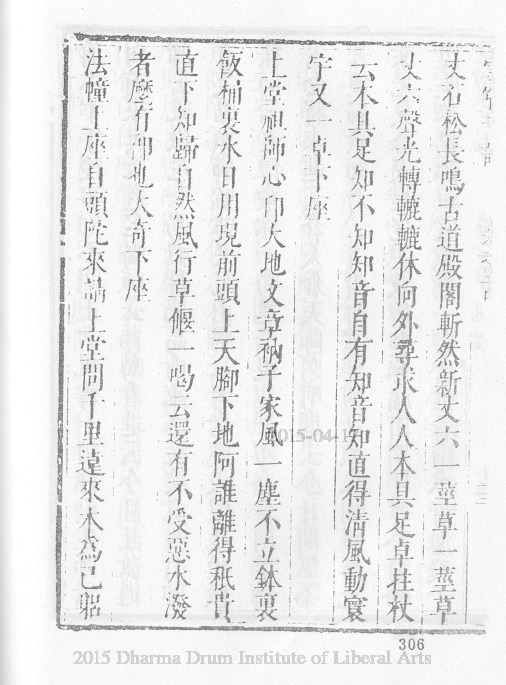 丈石松長鳴古道殿閣斬然新丈六一莖草一莖草
丈六聲光轉轆轆休向外尋求人人本具足卓拄杖
云本具足知不知知音自有知音知直得清風動寰
宇又一卓下座
上堂祖師心印大地文章衲子家風一塵不立鉢裏
飯桶裏水日用現前頭上天腳下地阿誰離得秖貴
直下知歸自然風行草偃一喝云還有不受惡水潑
者麼有卽地大奇下座
法幢上座自頭陀來請上堂問千里遠來木為己躬
2015-04-17
306
2015 Dharma Drum Institute of Liberal Arts